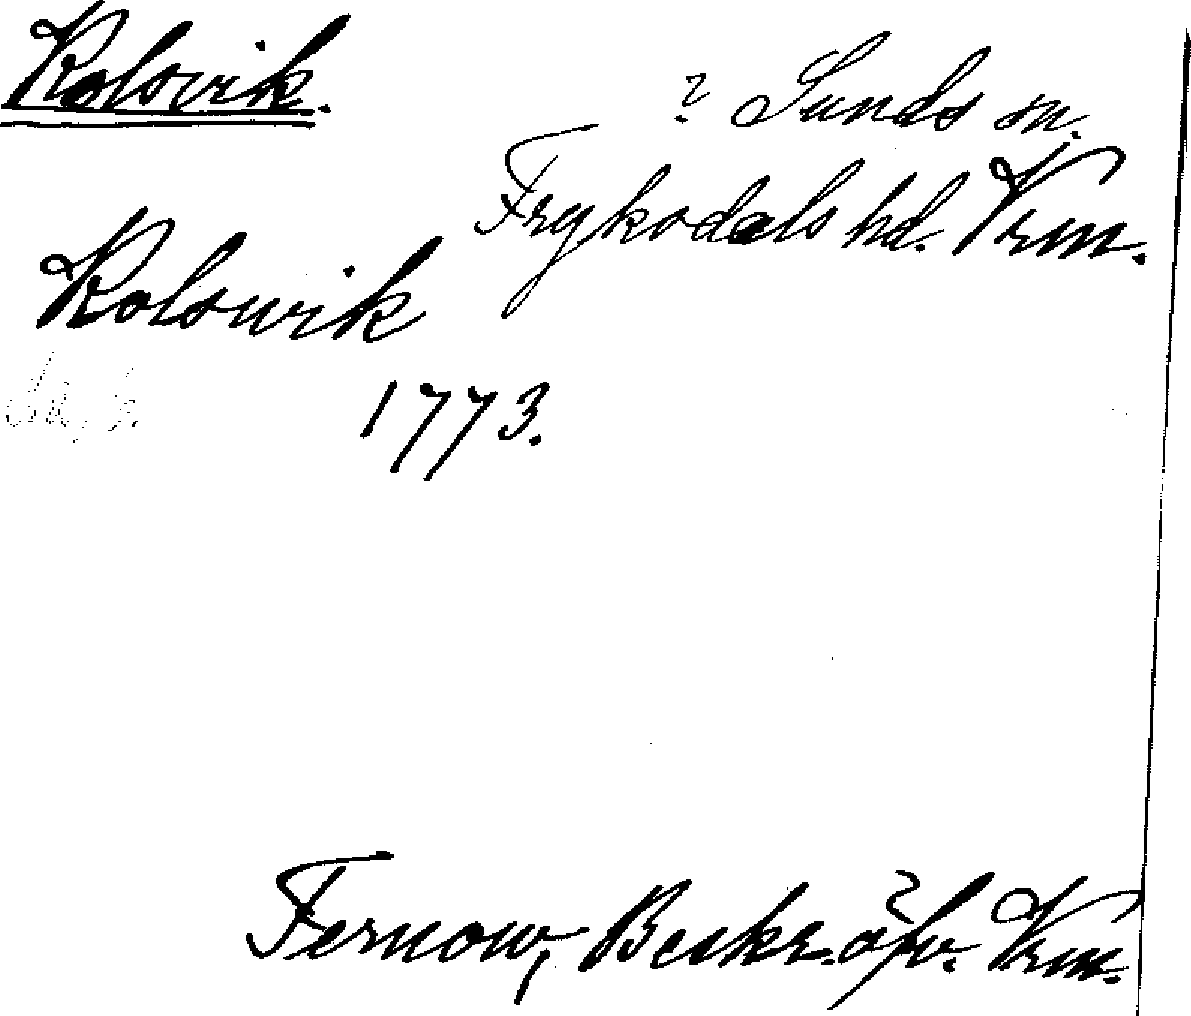 Kolsvik.
? Sunds sn.
Fryksdals hd. Vrm.
Kolswik
1773.
Fernow, Beskr. öfv. Vrm.